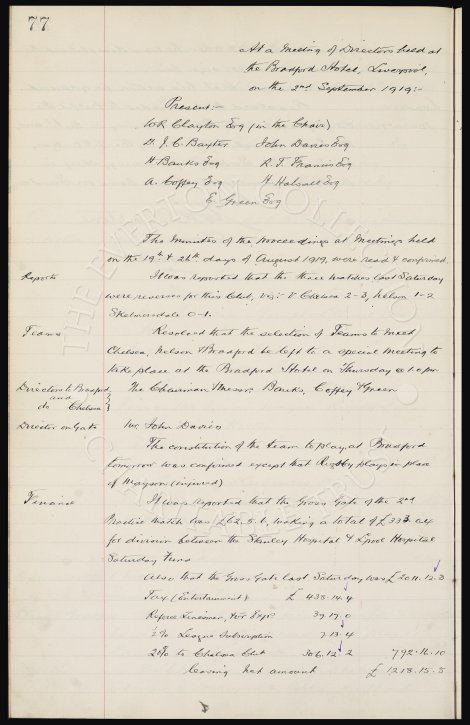 77
At a Meeting of Directors held at
the Bradford Hotel, Liverpool,
on the 2nd September 1919:-
Present:-
W.R. Clayton Esq (in the Chair)
Dr J.C. Baxter John Davies Esq
H. Banks Esq R.T. Francis Esq
A. Coffey Esq H Halsall Esq
E. Green Esq
The Minutes of the proceedings at Meetings held
on the 19th & 26th days of August 1919, were read & confirmed
Reports It was reported that the three matches last Saturday
were reverses for this Club, viz:- V Chelsea 2-3, Nelson 1-2
Skelmersdale 0-1.
Teams Resolved that the selection of Teams to meet
Chelsea, Nelson & Bradford be left to a special meeting to
take place at the Bradford Hotel on Thursday at pm
Directors to Bradford The Chairman & Messrs. Banks, Coffey & Green
and
do Chelsea
Director on Gate Mr John Davies
The constitution of the team to play at Bradford
tomorrow was confirmed except that Rigsby plays in place
of Mayson (injured)
Finance It was reported that the Gross Gate of the 2nd
Practice Match was £62.5.6, making a total of £333
for division between the Stanley Hospital & Lpool Hospital
Saturday Fund
Also that the Gross Gate last Saturday was £2011.12.3
Tax (Entertainment) £ 435.14.4
Referee Linesmen, & Exps 39.19.0
League Subscription 4
20% to Chelsea Club 306.12.2 792.16.10
leaving net amount £1218.15.5
THE EVERTON COLLECTION